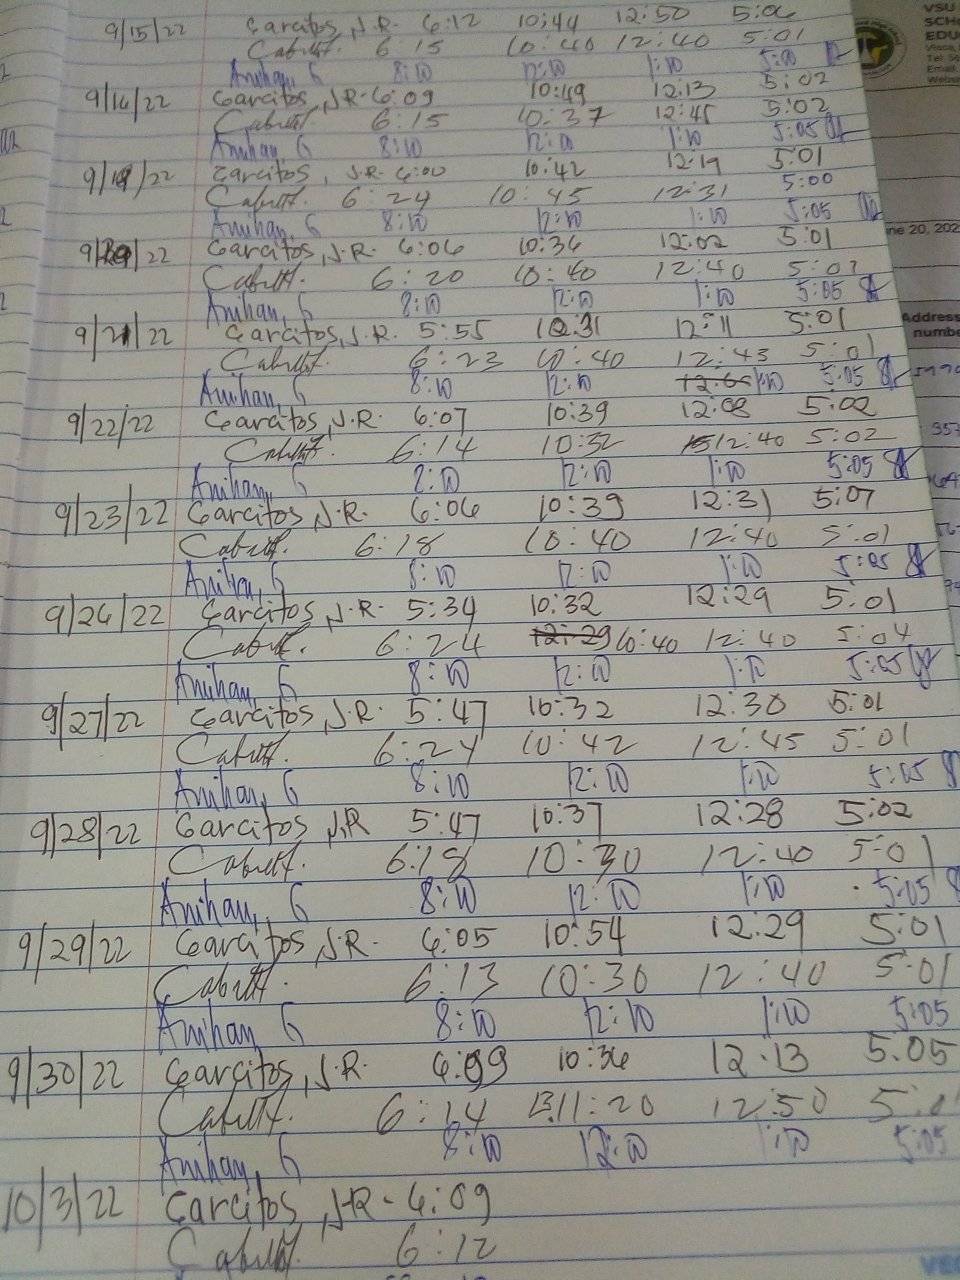 9/15/22 Garcitos, J.R. 6:12 10:44 12:50 5:06
Cabrett. 6:15 10:40 12:40 5:01
Anihan, G 8:00 12:00 1:00 5:00
9/16/22 Garcitos, J.R. 6:09 10:49 12:13 5:02
6:15 10:37 12:45 5:02
Anihan, G 8:00 12:00 1:00 5:05
9/19/22 Garcitos, J.R. 6:00 10:42 12:19 5:01
6:24 10:45 12:31 5:00
Anihan, G 8:00 12:00 1:00 5:05
9/20/22 Garcitos, J.R. 6:06 10:36 12:02 5:01
6:20 10:40 12:40 5:02
Anihan, G 8:00 12:00 1:00 5:05
9/21/22 Garcitos, J.R. 5:55 10:31 12:11 5:01
6:23 10:40 12:43 5:01
Anihan, G 8:00 12:00 1:00 5:05
9/22/22 Garcitos, J.R. 6:07 10:39 12:08 5:02
6:14 10:32 12:40 5:02
Anihan, G 8:00 12:00 1:00 5:05
9/23/22 Garcitos, J.R. 6:06 10:39 12:31 5:07
6:18 10:40 12:40 5:01
Anihan, G 8:00 12:00 1:00 5:05
9/26/22 Garcitos, J.R. 5:34 10:32 12:29 5:01
6:24 12:29 10:40 12:40 5:04
Anihan, G 8:00 12:00 1:00 5:05
9/27/22 Garcitos, J.R. 5:47 10:32 12:30 5:01
6:24 10:42 12:45 5:01
Anihan, G 8:00 12:00 1:00 5:05
9/28/22 Garcitos, J.R 5:47 10:37 12:28 5:02
6:18 10:30 12:40 5:01
Anihan, G 8:00 12:00 1:00 5:05
9/29/22 Garcitos, J.R. 6:05 10:54 12:29 5:01
6:13 10:30 12:40 5:01
Anihan, G 8:00 12:00 1:00 5:05
9/30/22 Garcitos, J.R. 6:09 10:36 12:13 5:05
6:14 11:20 12:50
Anihan, G 8:00 12:00 1:00 5:05
10/3/22 Garcitos, J.R - 6:09
6:12
VSU
Address
numbe